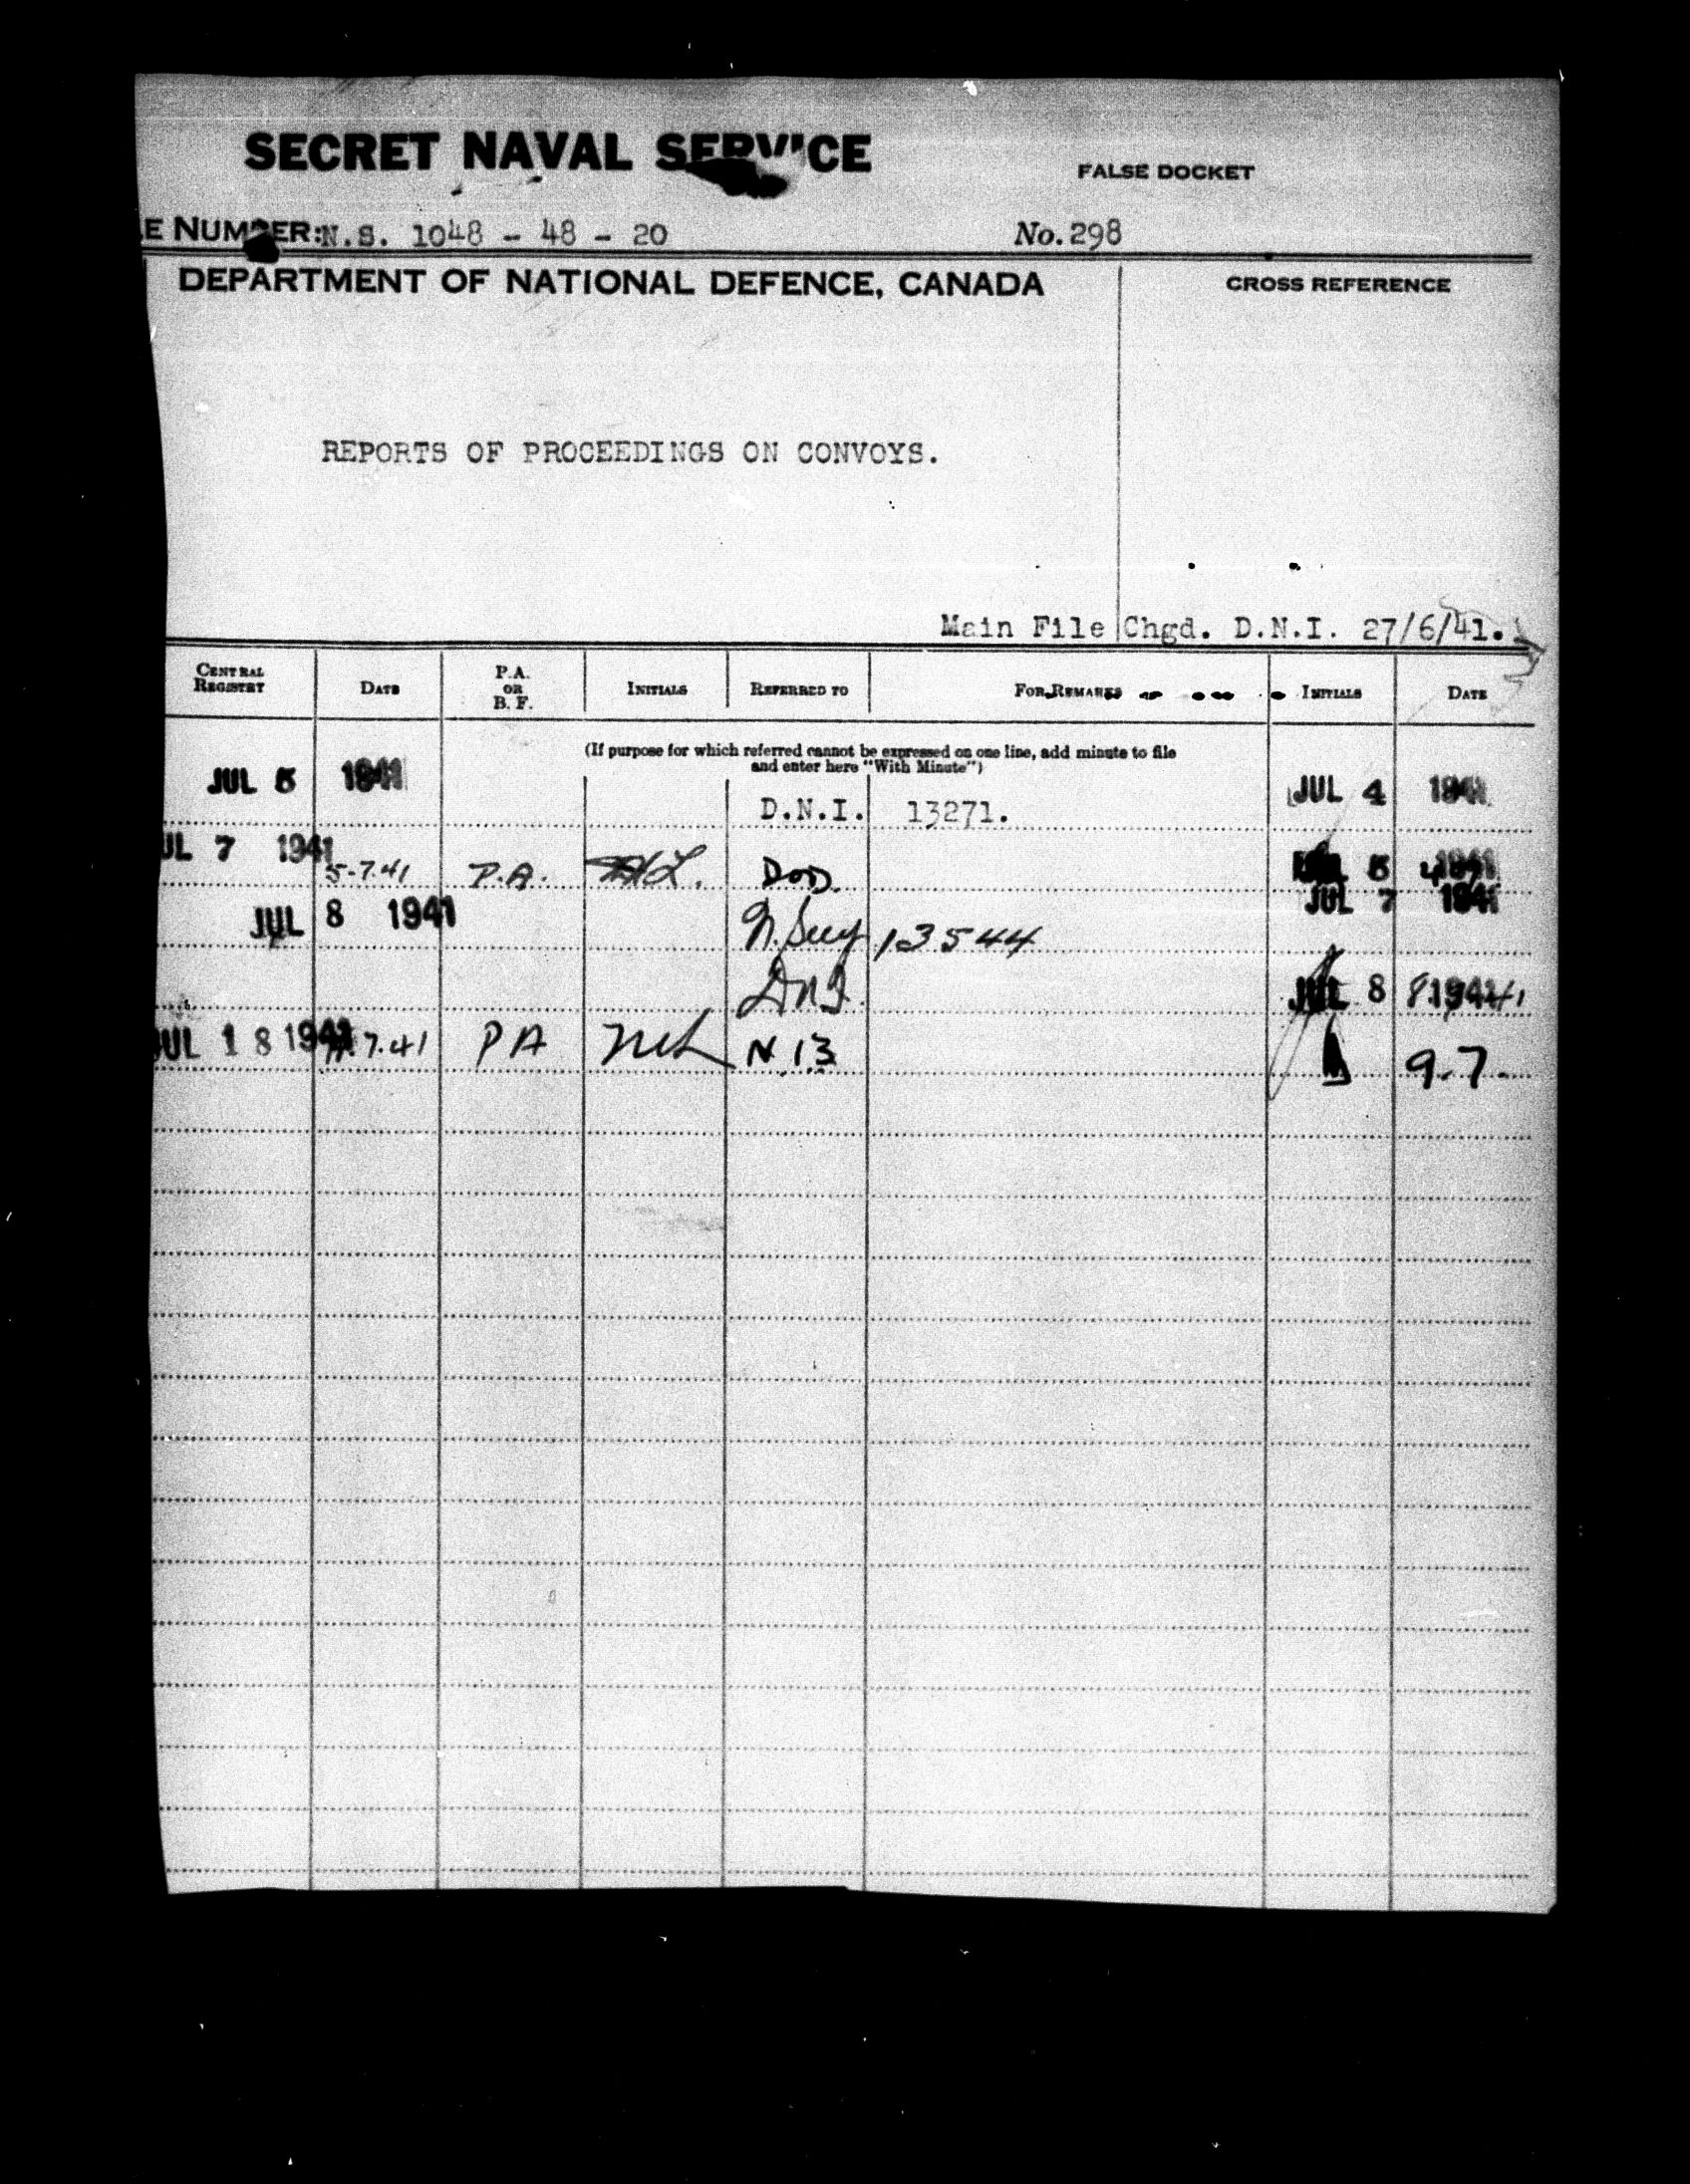 SECRET NAVAL SERVICE
FALSE DOCKET
E NUMBER: N.S. 1048 - 48 - 20
No. 298
DEPARTMENT OF NATIONAL DEFENCE, CANADA
CROSS REFERENCE
REPORTS OF PROCEEDINGS ON CONVOYS.
Main File Chgd. D.N.I. 27/6/41.
CENTRAL REGISTRY DATE P.A. OR B.F. INITIALS REFERRED TO FOR REMARKS INITIALS DATE
(If purpose for which referred cannot be expressed on one line, add minute to file
and enter here "With Minute")
JUL 5 1941 D.N.I. 13271. JUL 4 1941
UL 7 1941
5-7.41 P.A. DOD 5 1941
JUL 7 1941
JUL 8 1941 N. Secy 13544
DNI JUL 8 1941
UL 18 1941 7.41 PA N 13 9.7.